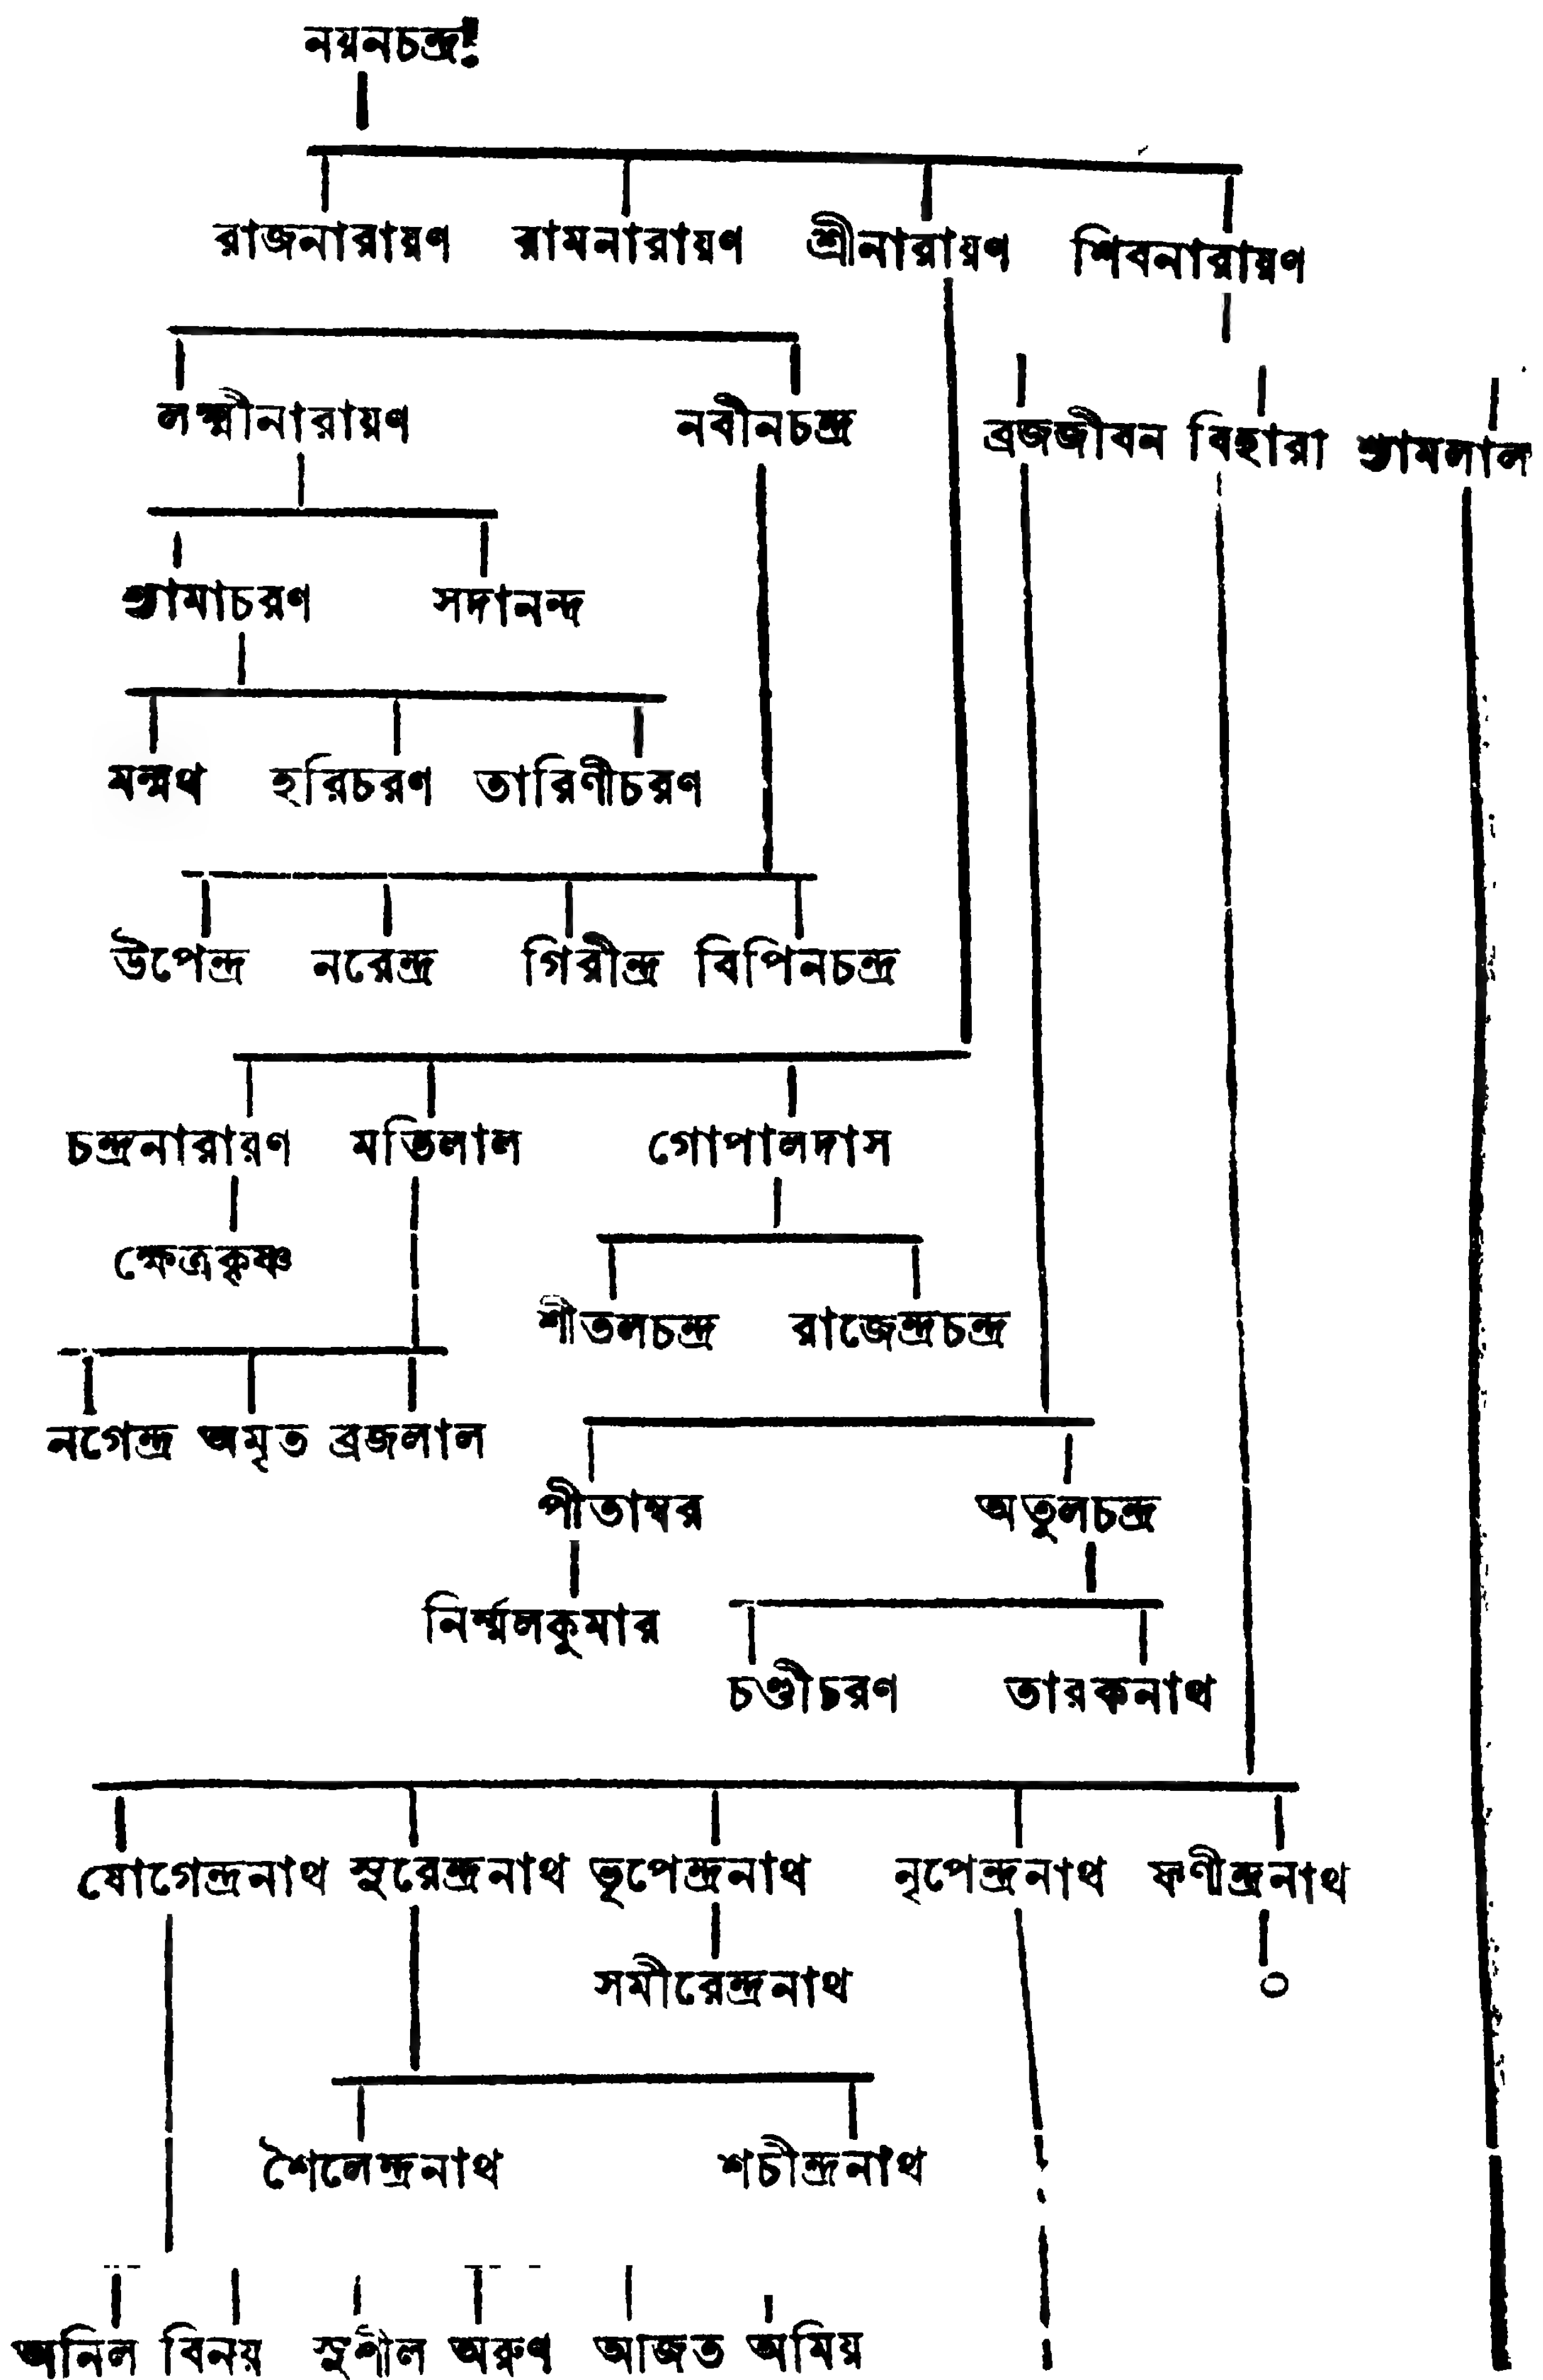 নয়নচন্দ্র
রাজনারায়ণ রামনারায়ণ শ্রীনারায়ণ শিবনারায়ণ
লক্ষ্মীনারায়ণ নবীনচন্দ্র ব্রজজীবন বিহারা শ্যামলাল
শ্যামাচরণ সদানন্দ
মন্মথ হরিচরণ তারিণীচরণ
উপেন্দ্র নরেন্দ্র গিরীন্দ্র বিপিনচন্দ্র
চন্দ্রনারারণ মতিলাল গোপালদাস
ক্ষেত্রকৃষ্ণ
শীতলচন্দ্র রাজেন্দ্রচন্দ্র
নগেন্দ্র অমৃত ব্রজলাল
পীতাম্বর অতুলচন্দ্র
নির্ম্মলকুমার
চণ্ডীচরণ তারকনাথ
যোগেন্দ্রনাথ সুরেন্দ্রনাথ ভূপেন্দ্রনাথ নৃপেন্দ্রনাথ ফণীন্দ্রনাথ
সমীরেন্দ্রনাথ ০
শৈলেন্দ্রনাথ শচীন্দ্রনাথ
অনিল বিনয় সুশীল অরুণ আজত অমিয়